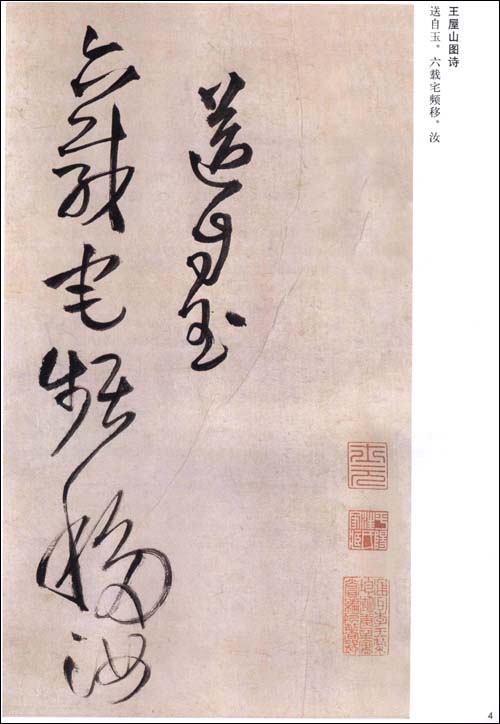 王屋山图诗
送自玉。六载宅频移。汝
送自玉
六载宅频移汝
4